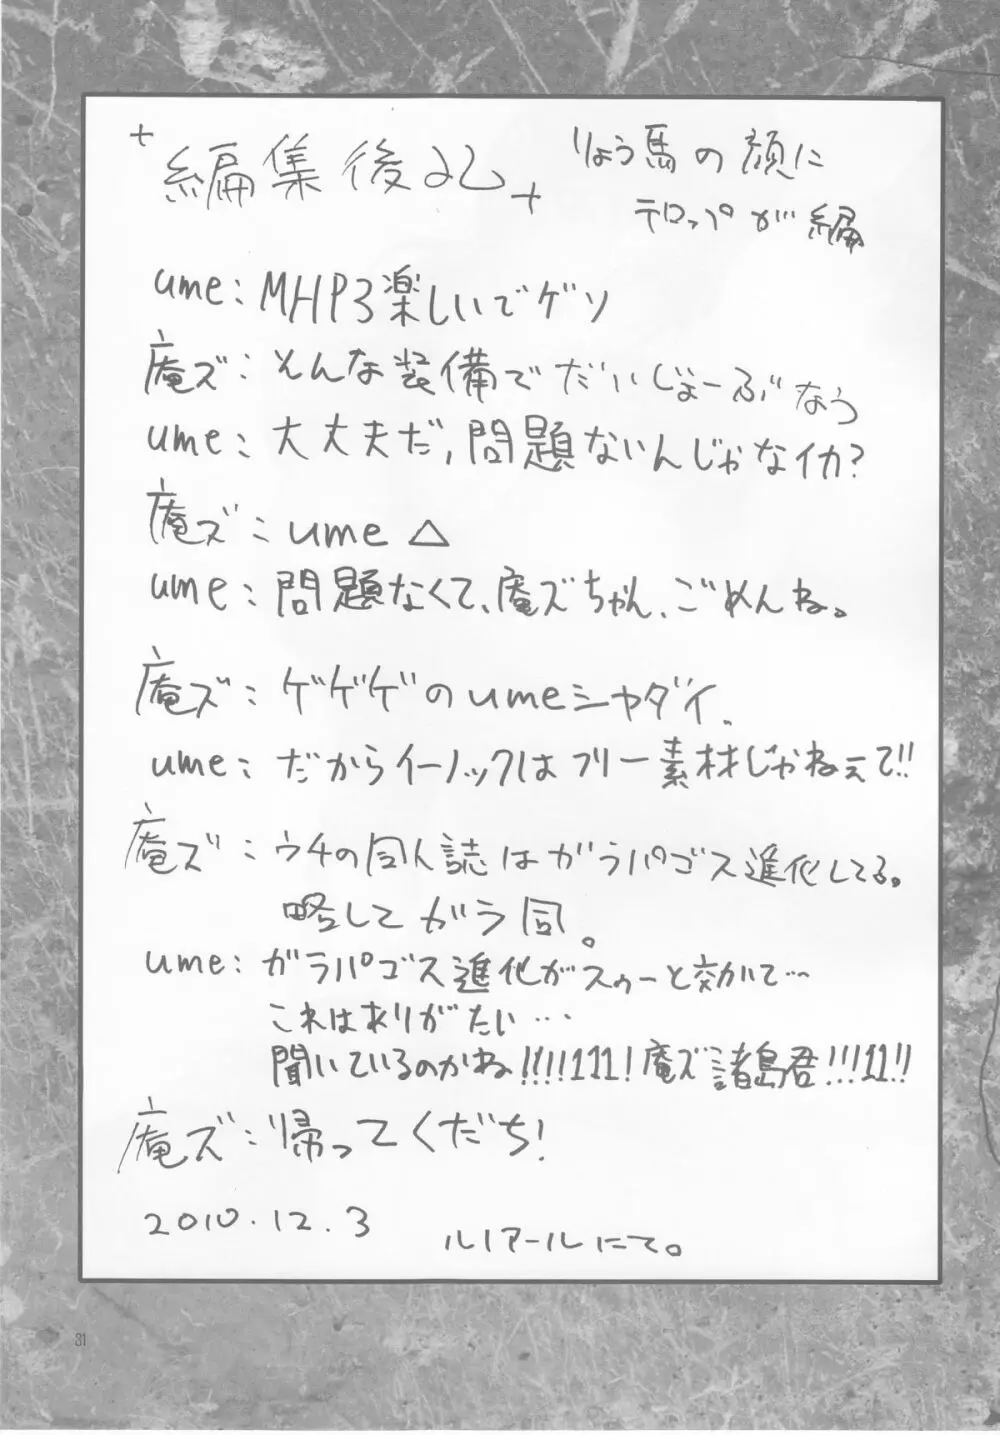 +編集後記+
りょう馬の顔に
テロップが編
ume:MHP3楽しいでゲソ
庵ズ:そんな装備でだいじょーぶなう
ume:大丈夫だ,問題ないんじゃなイカ?
庵ズ:ume△
ume:問題なくて、庵ズちゃん、ごめんね。
庵ズ:ゲゲゲのumeシャダイ。
ume:だからイーノックはフリー素材じゃねぇて!!
庵ズ:ウチの同人誌はガラパゴス進化してる。
略してガラ同。
ume:ガラパゴス進化がスゥーと効いて…
これはありがたい…
聞いているのかね!!!!111!庵ズ諸島君!!!11!!
庵ズ:帰ってくだち!
2010.12.3
ルノアールにて。
31